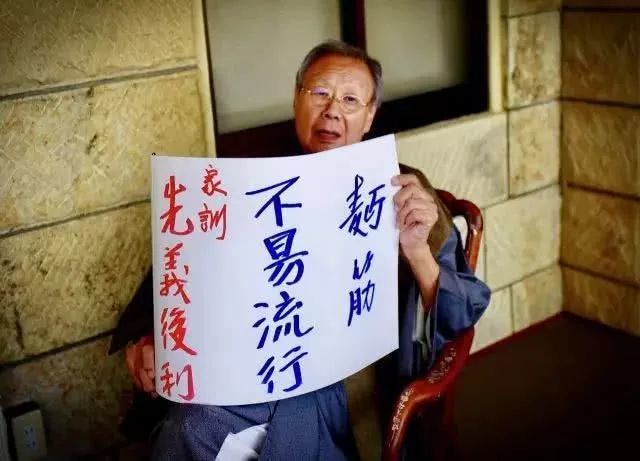 麺筋
不易流行
家訓
先義後利